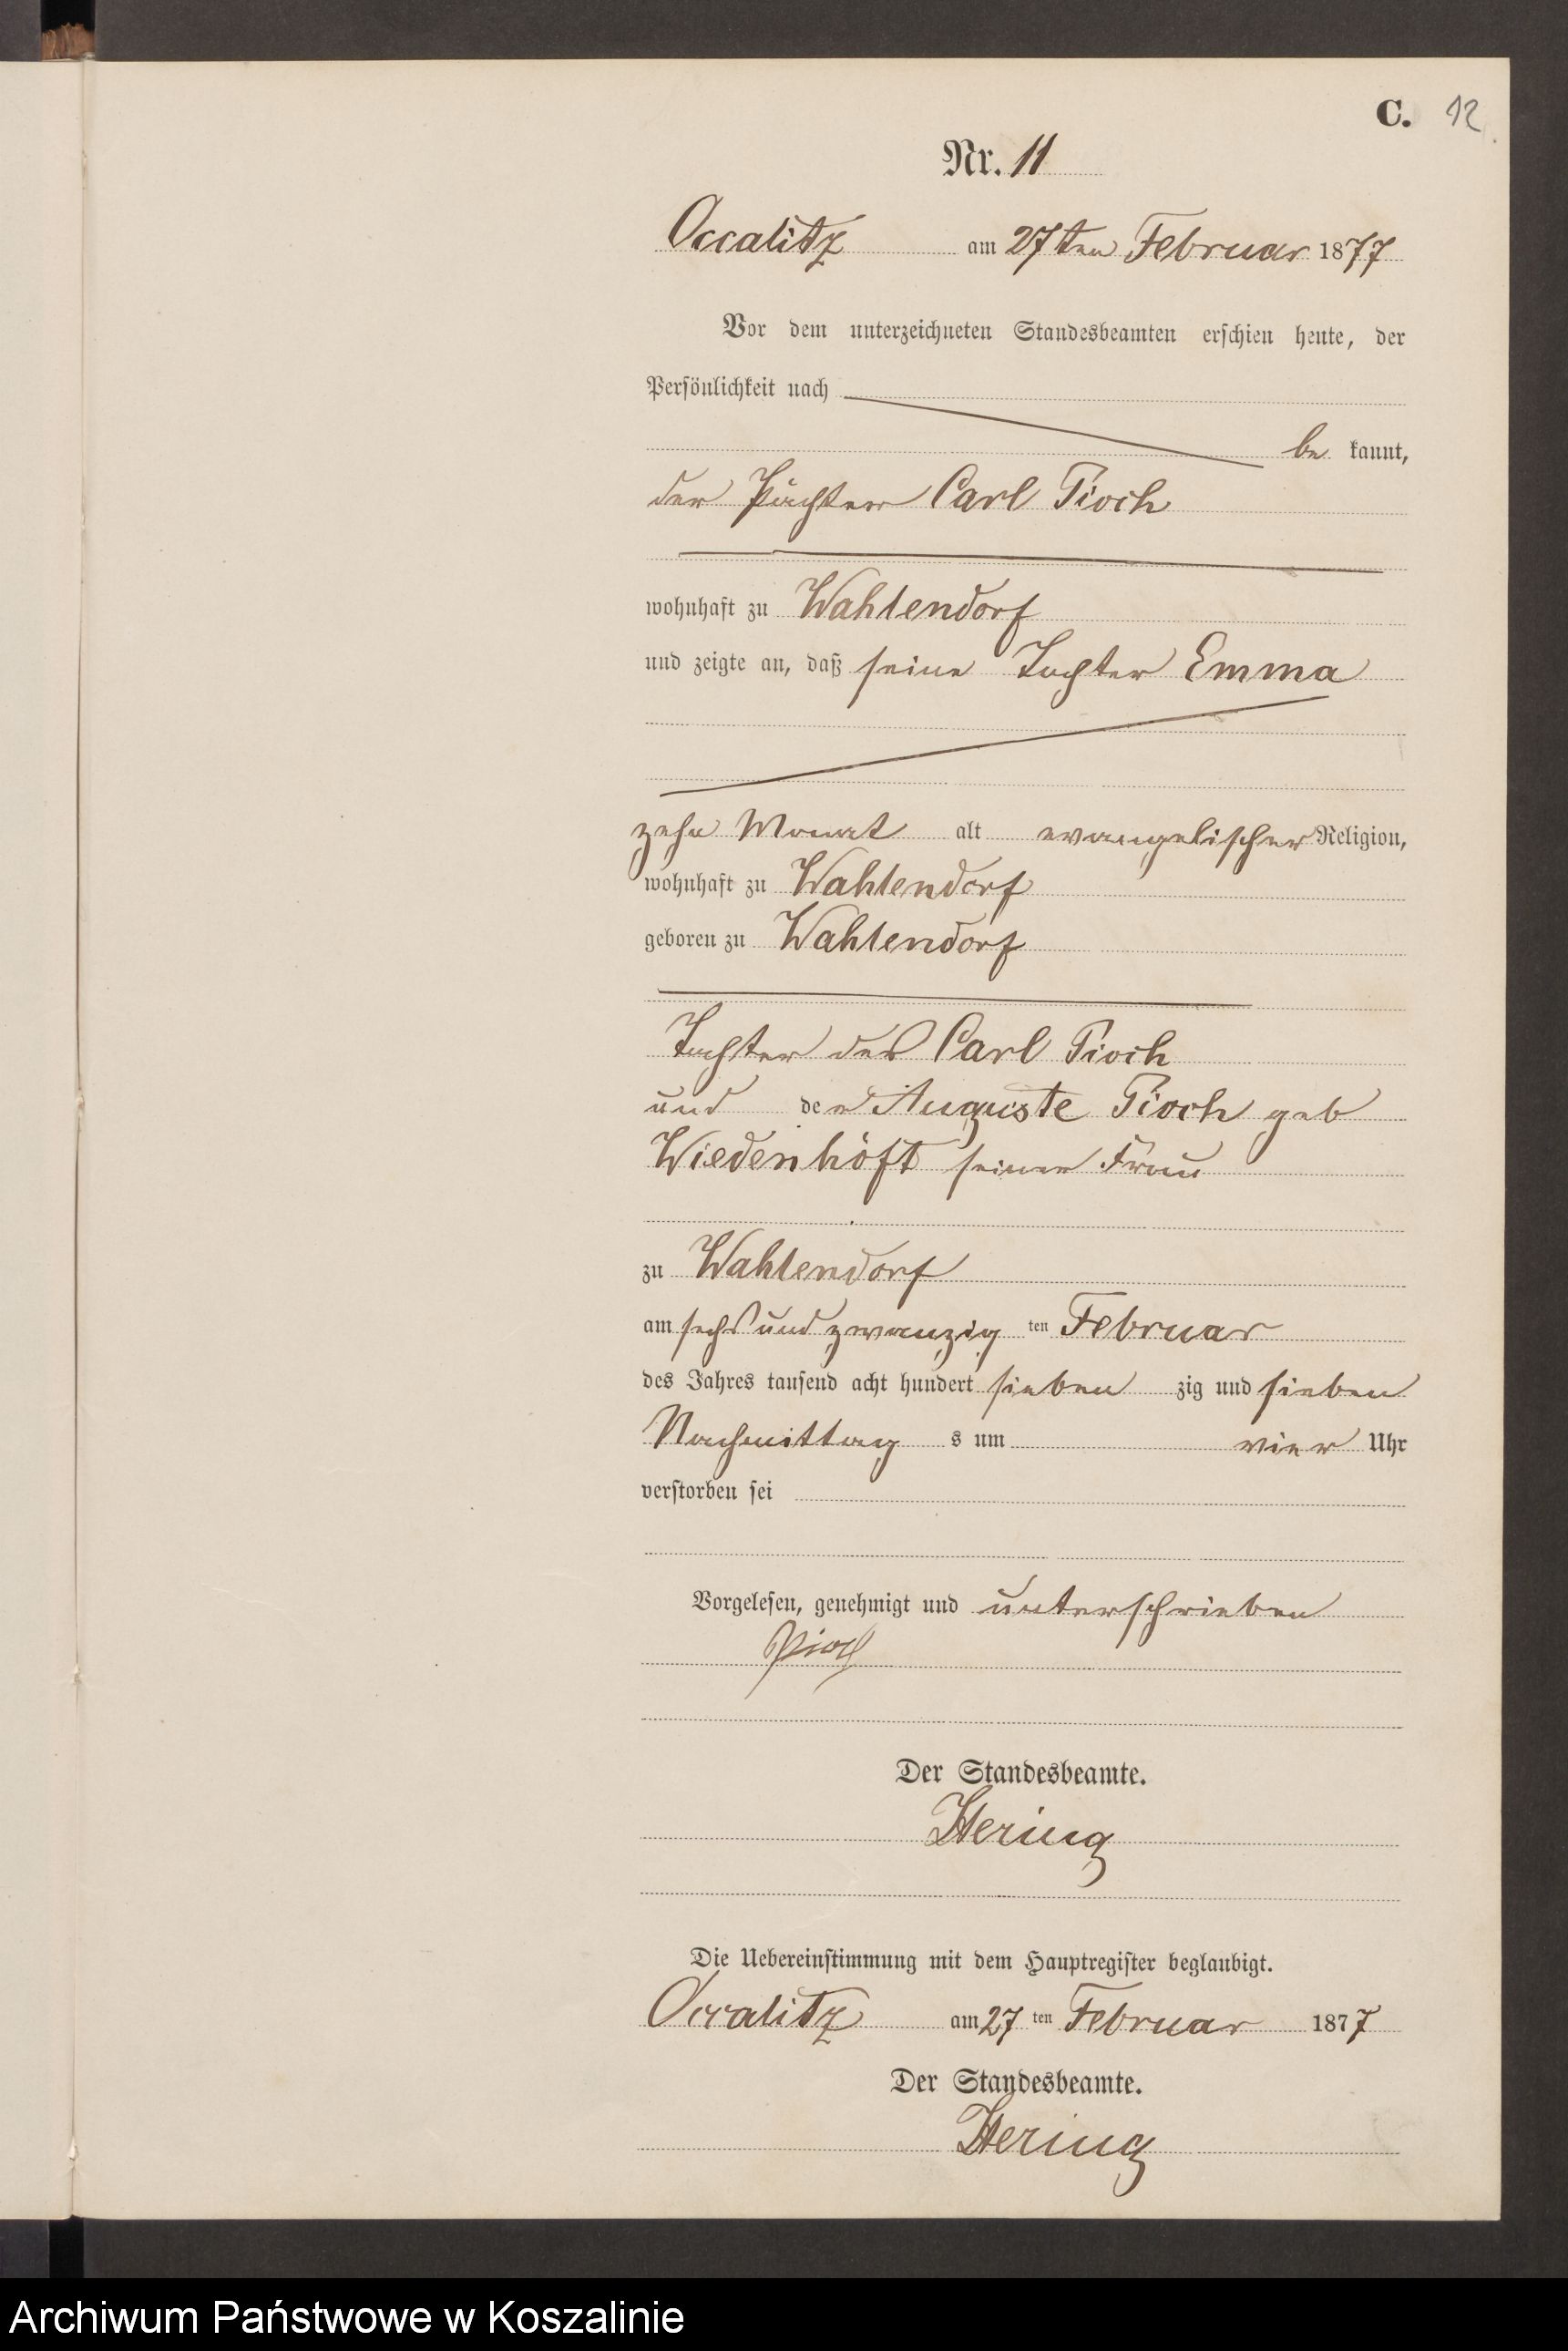 C. 12
Nr. 11
Occalitz am 27ten Februar 1877
Vor dem unterzeichneten Standesbeamten erschien heute, der
Persönlichkeit nach
be kannt,
der Pächter Carl Pioch
wohnhaft zu Wahlendorf
und zeigte an, daß seine Tochter Emma
zehn Monat alt evangelischer Religion,
wohnhaft zu Wahlendorf
geboren zu Wahlendorf
Tochter des Carl Pioch
und der Auguste Pioch geb
Wiedenhöft seiner Frau
zu Wahlendorf
am sechs und zwanzig ten Februar
des Jahres tausend acht hundert sieben zig und sieben
Nachmittag s um vier Uhr
verstorben sei
Vorgelesen, genehmigt und unterschrieben
Pioch
Der Standesbeamte.
Hering
Die Uebereinstimmung mit dem Hauptregister beglaubigt.
Occalitz am 27 ten Februar 1877
Der Standesbeamte.
Hering
Archiwum Państwowe w Koszalinie